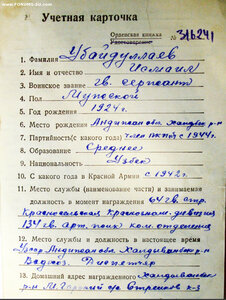 www.FORUMS-SU.com
Учетная карточка
Орденская книжка
Удостоверение № 316241
1. Фамилия Убайдуллаев
2. Имя и отчество Исмаил
3. Воинское звание гв. сержант
4. Пол Мужской
5. Год рождения 1924 г.
6. Место рождения Андижанская
7. Партийность (с какого года) член ВКП(б) с 1944 г.
8. Образование Среднее
9. Национальность Узбек
10. С какого года в Красной Армии с 1942 г.
11. Место службы (наименование части) и занимаемая
должность в момент награждения 64 гв. стр.
Красносельская Краснознам. дивизия
134 гв. арт. полк ком. отделения
12. Место службы и должность в настоящее время
Андижанская
13. Домашний адрес награжденного